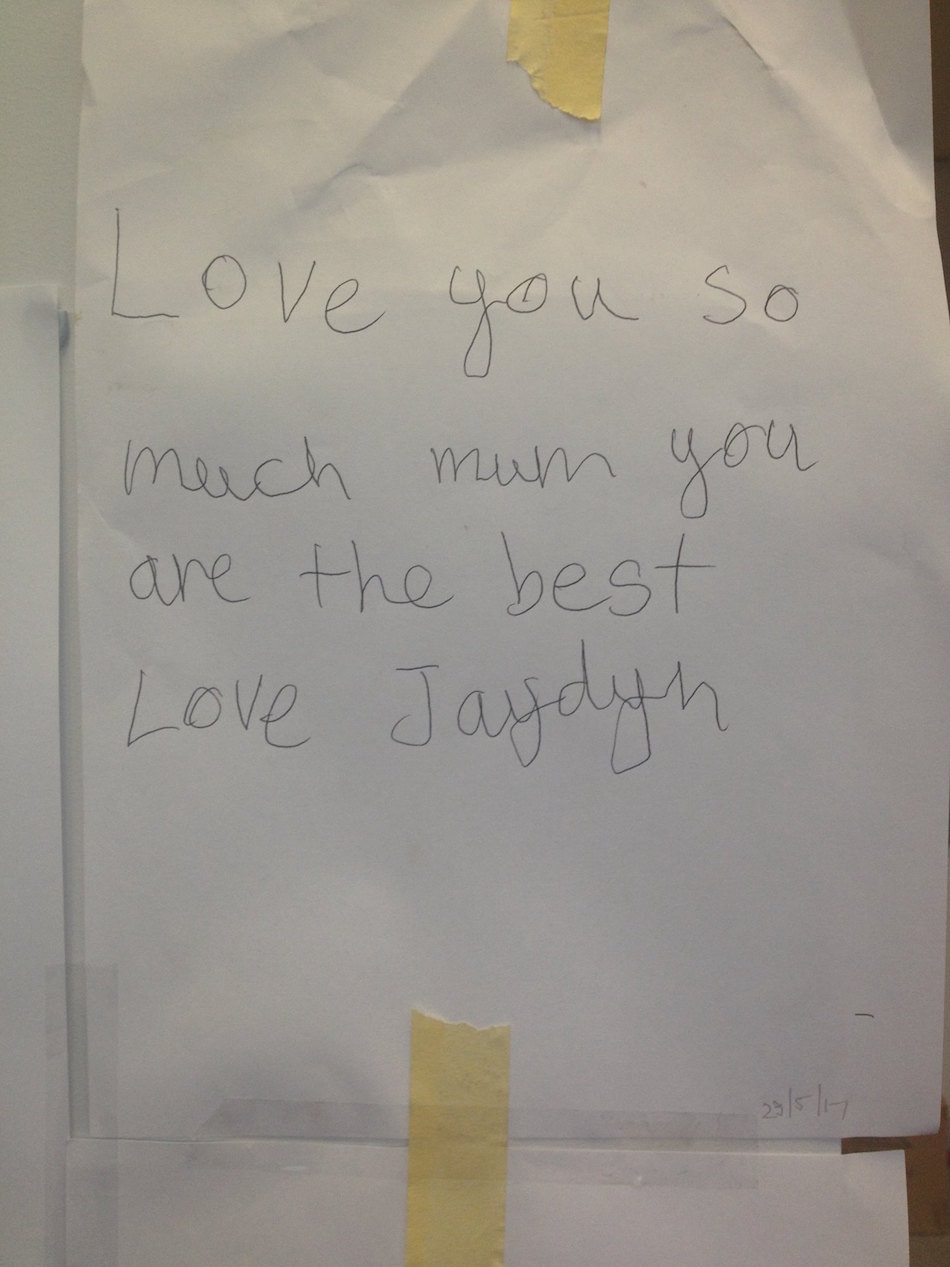 Love you so
much mum you
are the best
Love Jaydyn
23/5/17